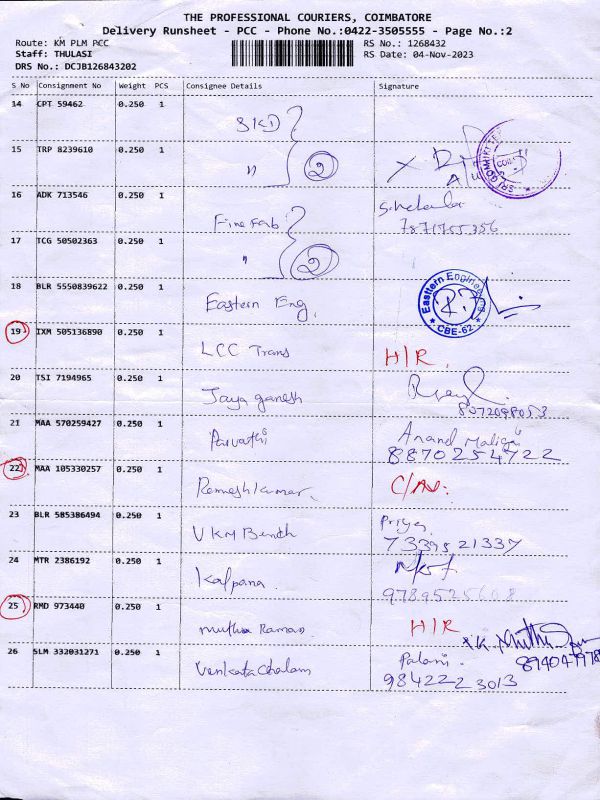 THE PROFESSIONAL COURIERS, COIMBATORE
Delivery Runsheet - PCC - Phone No.:0422-3505555 - Page No.:2
Route: KM PLM PCC
RS No.: 1268432
Staff: THULASI
RS Date: 04-Nov-2023
DRS No.: DCJB126843202
S No Consignment No Weight PCS Consignee Details Signature
14 CPT 59462 0.250 1 SKD
15 TRP 8239610 0.250 1 " 2 X
16 ADK 713546 0.250 1 Fine Fab
7871755356
17 TCG 50502363 0.250 1 " 2
18 BLR 5550839622 0.250 1 Eastern Eng.
Easttern Engineering
* CBE-62 *
19 IXM 505136890 0.250 1 LCC Trans H/R.
20 TSI 7194965 0.250 1 Jaya ganesh
8072098053
21 MAA 570259427 0.250 1 Parvathi Anand
8870254722
22 MAA 105330257 0.250 1 Rameshkumar.
23 BLR 585386494 0.250 1 VKM Priya
7339521337
24 MTR 2386192 0.250 1 Kalpana.
25 RMD 973440 0.250 1 Muthu Raman H/R
26 SLM 332031271 0.250 1 Venkatachalam Palani.
9842223013